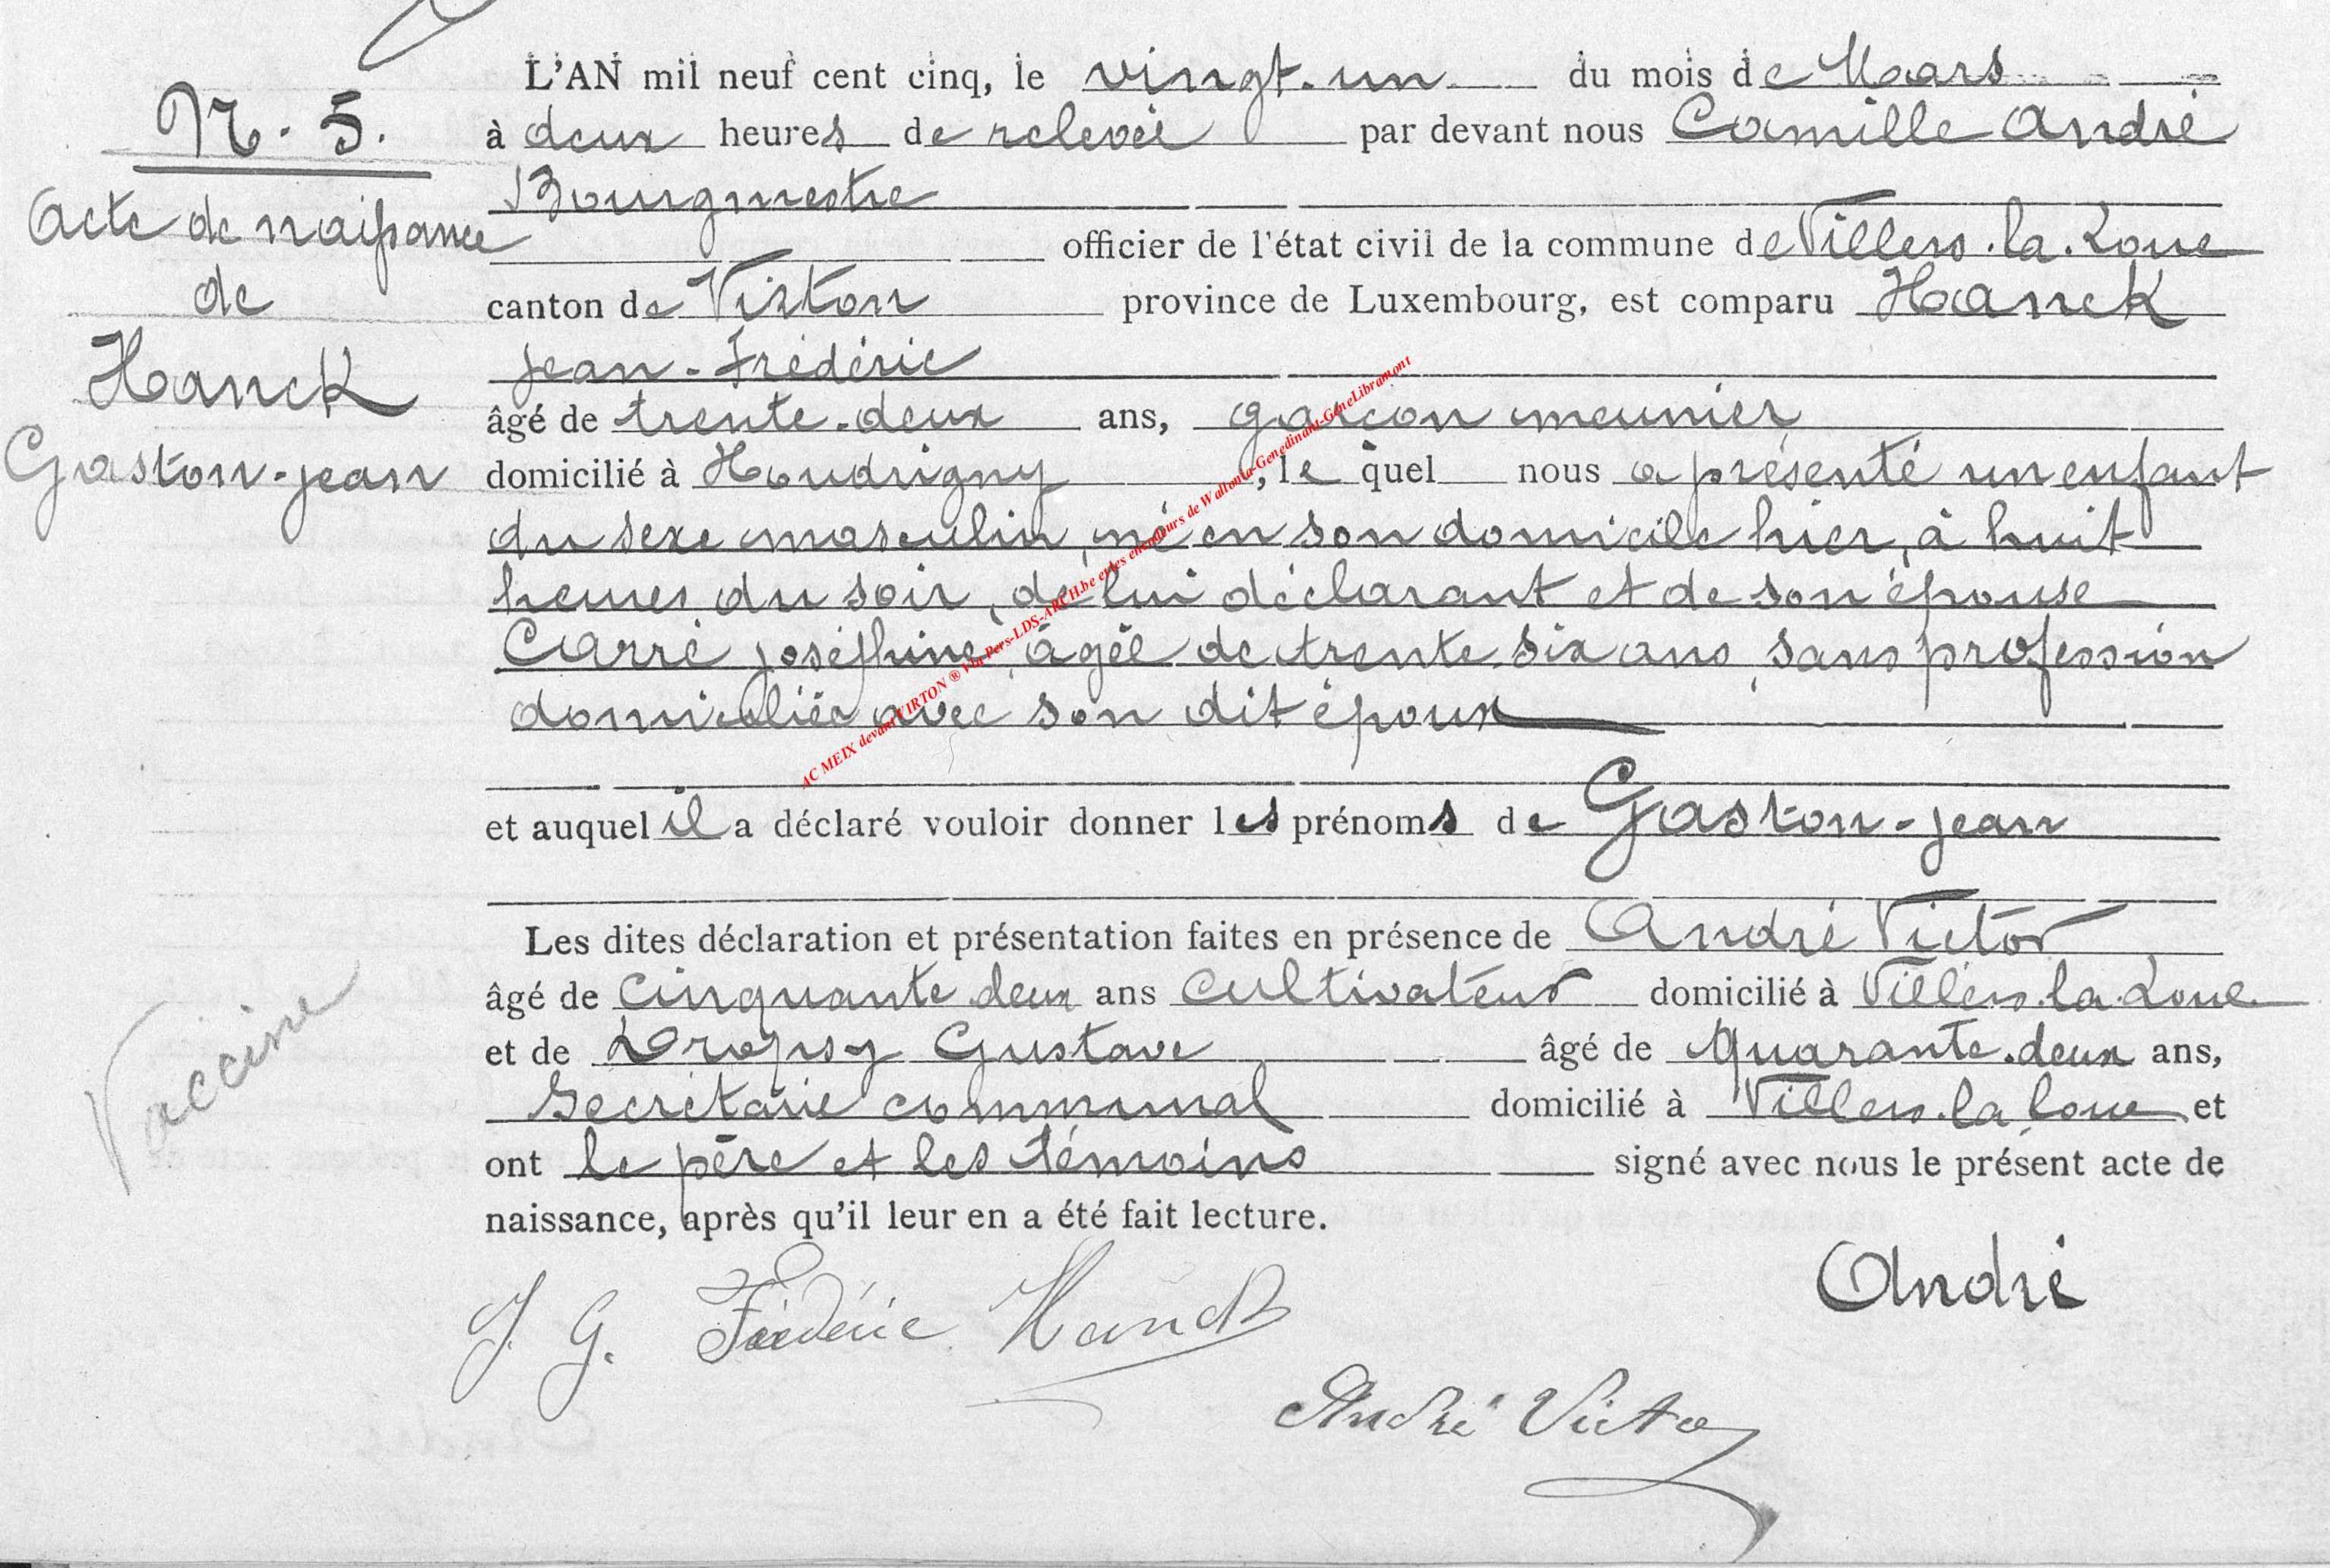 N. 5.
Acte de naissance
de
Hanck
Gaston-jean
Vaccine
L'AN mil neuf cent cinq, le vingt-un du mois de Mars
à deux heures de relevée par devant nous Camille André
Bourgmestre
officier de l'état civil de la commune de Villers-la-Loue
canton de Virton province de Luxembourg, est comparu Hanck
jean-Frédéric
âgé de trente-deux ans, garçon meunier
domicilié à Houdrigny, lequel nous a présenté un enfant
du sexe masculin, né en son domicile hier, à huit
heures du soir, de lui déclarant et de son épouse
Carré joséphine, âgée de trente-six ans, sans profession
domiciliée avec son dit époux
et auquel il a déclaré vouloir donner les prénoms de Gaston-jean
Les dites déclaration et présentation faites en présence de André Victor
âgé de cinquante deux ans cultivateur domicilié à Villers-la-Loue
et de Dropsy Gustave âgé de quarante-deux ans,
Secrétaire communal domicilié à Villers-la-loue et
ont le père et les témoins signé avec nous le présent acte de
naissance, après qu'il leur en a été fait lecture.
André
J. G. Frédéric Hanck
André Victor
AC MEIX devant VIRTON ® Via Pers-LDS-ARCH.be et les encodeurs de Wallonia-Genedinant-GeneLibramont